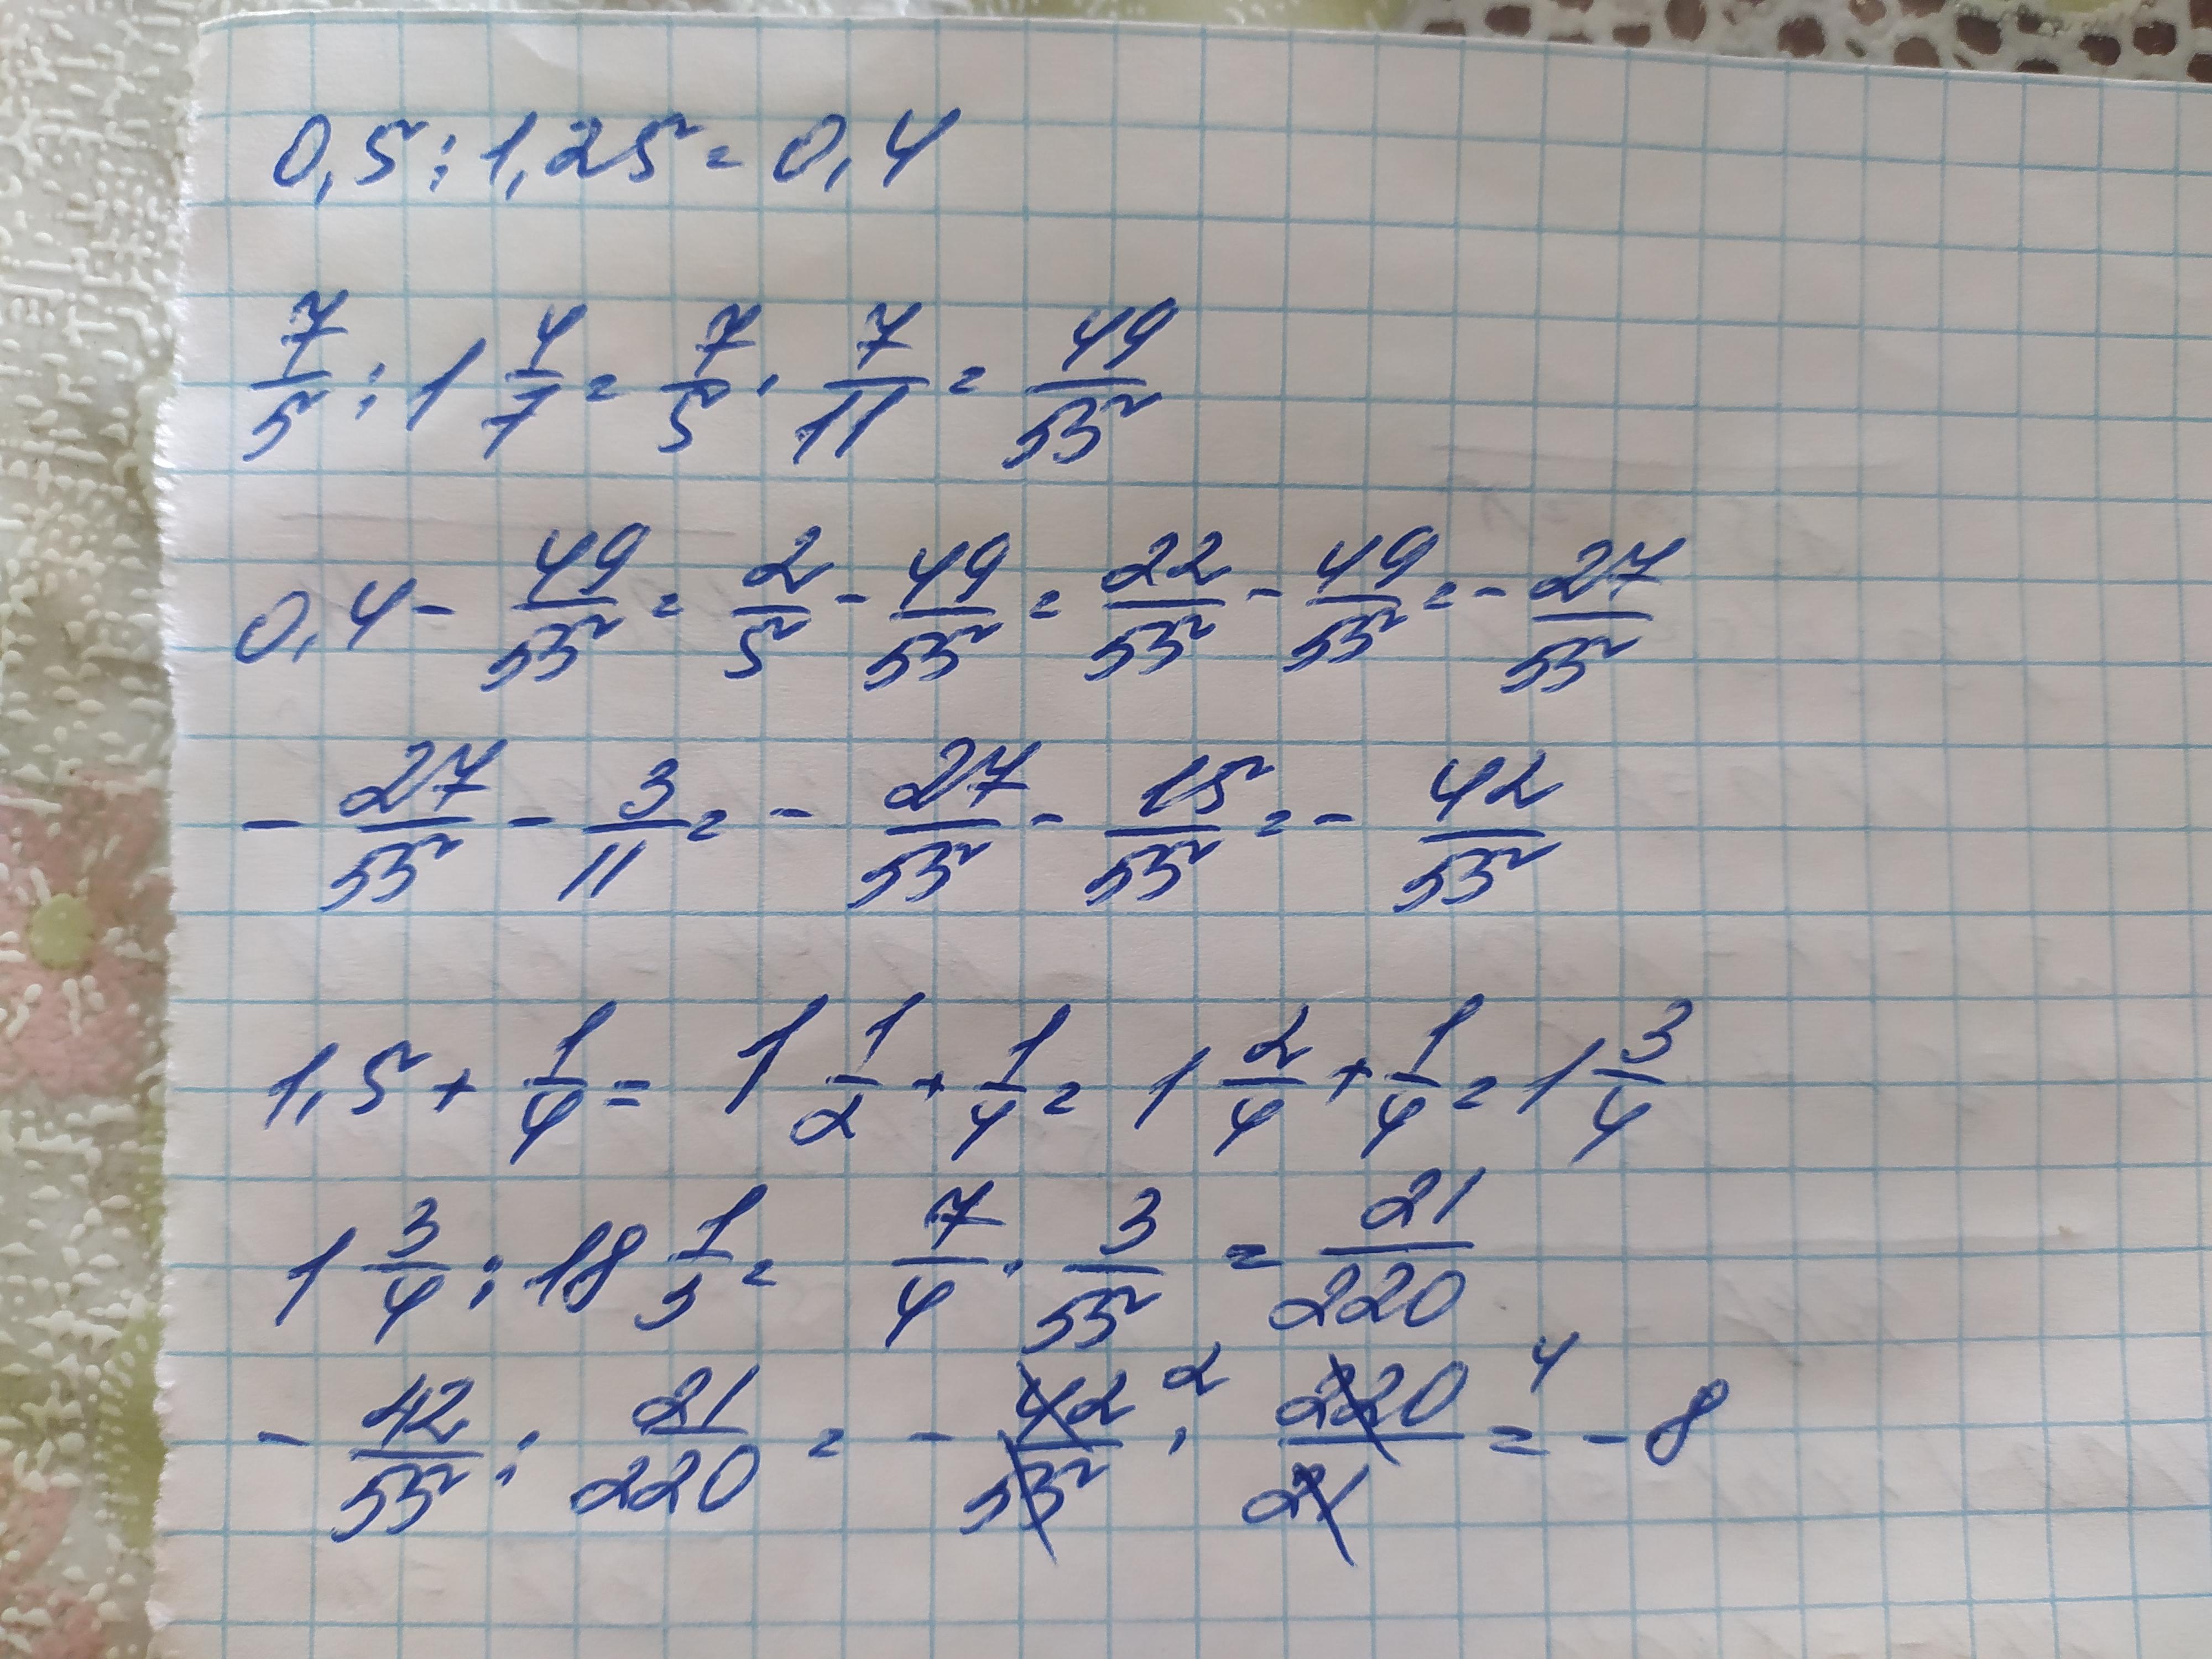 0,5 : 1,25 = 0,4
7/5 : 1 4/7 = 7/5 · 7/11 = 49/55
0,4 - 49/55 = 2/5 - 49/55 = 22/55 - 49/55 = - 27/55
- 27/55 - 3/11 = - 27/55 - 15/55 = - 42/55
1,5 + 1/4 = 1 1/2 + 1/4 = 1 2/4 + 1/4 = 1 3/4
1 3/4 : 18 1/3 = 7/4 · 3/55 = 21/220
- 42/55 : 21/220 = - 42/55 2 · 220/21 4 = - 8